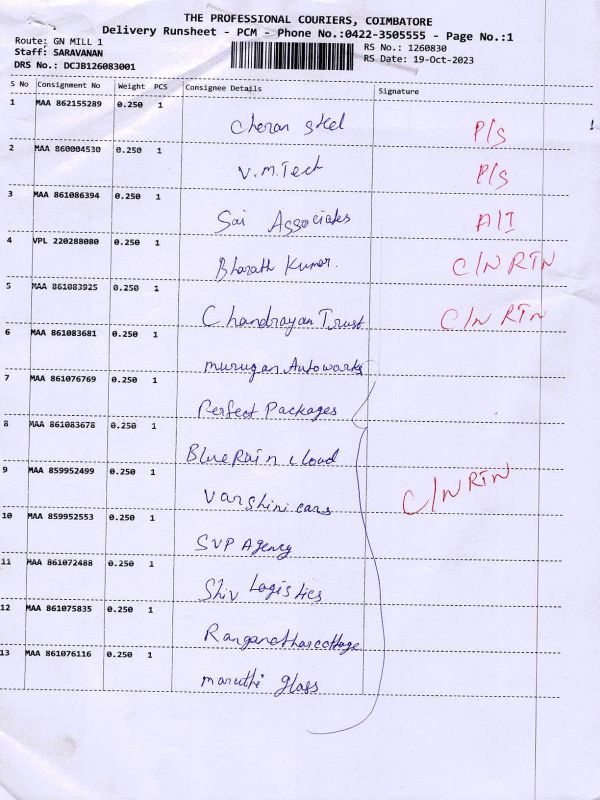 THE PROFESSIONAL COURIERS, COIMBATORE
Delivery Runsheet - PCM - Phone No.:0422-3505555 - Page No.:1
Route: GN MILL 1
RS No.: 1260830
Staff: SARAVANAN
RS Date: 19-Oct-2023
DRS No.: DCJB126083001
S No Consignment No Weight PCS Consignee Details Signature
1 MAA 862155289 0.250 1
Cheran Steel P/S
2 MAA 860004530 0.250 1
V.M.Tech P/S
3 MAA 861086394 0.250 1
Sai Associates A/I
4 VPL 220288080 0.250 1
Bharath Kumar. C/N RTN
5 MAA 861083925 0.250 1
Chandrayan Trust C/N RTN
6 MAA 861083681 0.250 1
murugan Autoworks
7 MAA 861076769 0.250 1
Perfect Packages
8 MAA 861083678 0.250 1
Blue Rain cloud
9 MAA 859952499 0.250 1
Varshini cars C/N RTN
10 MAA 859952553 0.250 1
SVP Agency
11 MAA 861072488 0.250 1
Shiv Logistics
12 MAA 861075835 0.250 1
Ranganathar cottage
13 MAA 861076116 0.250 1
maruthi glass